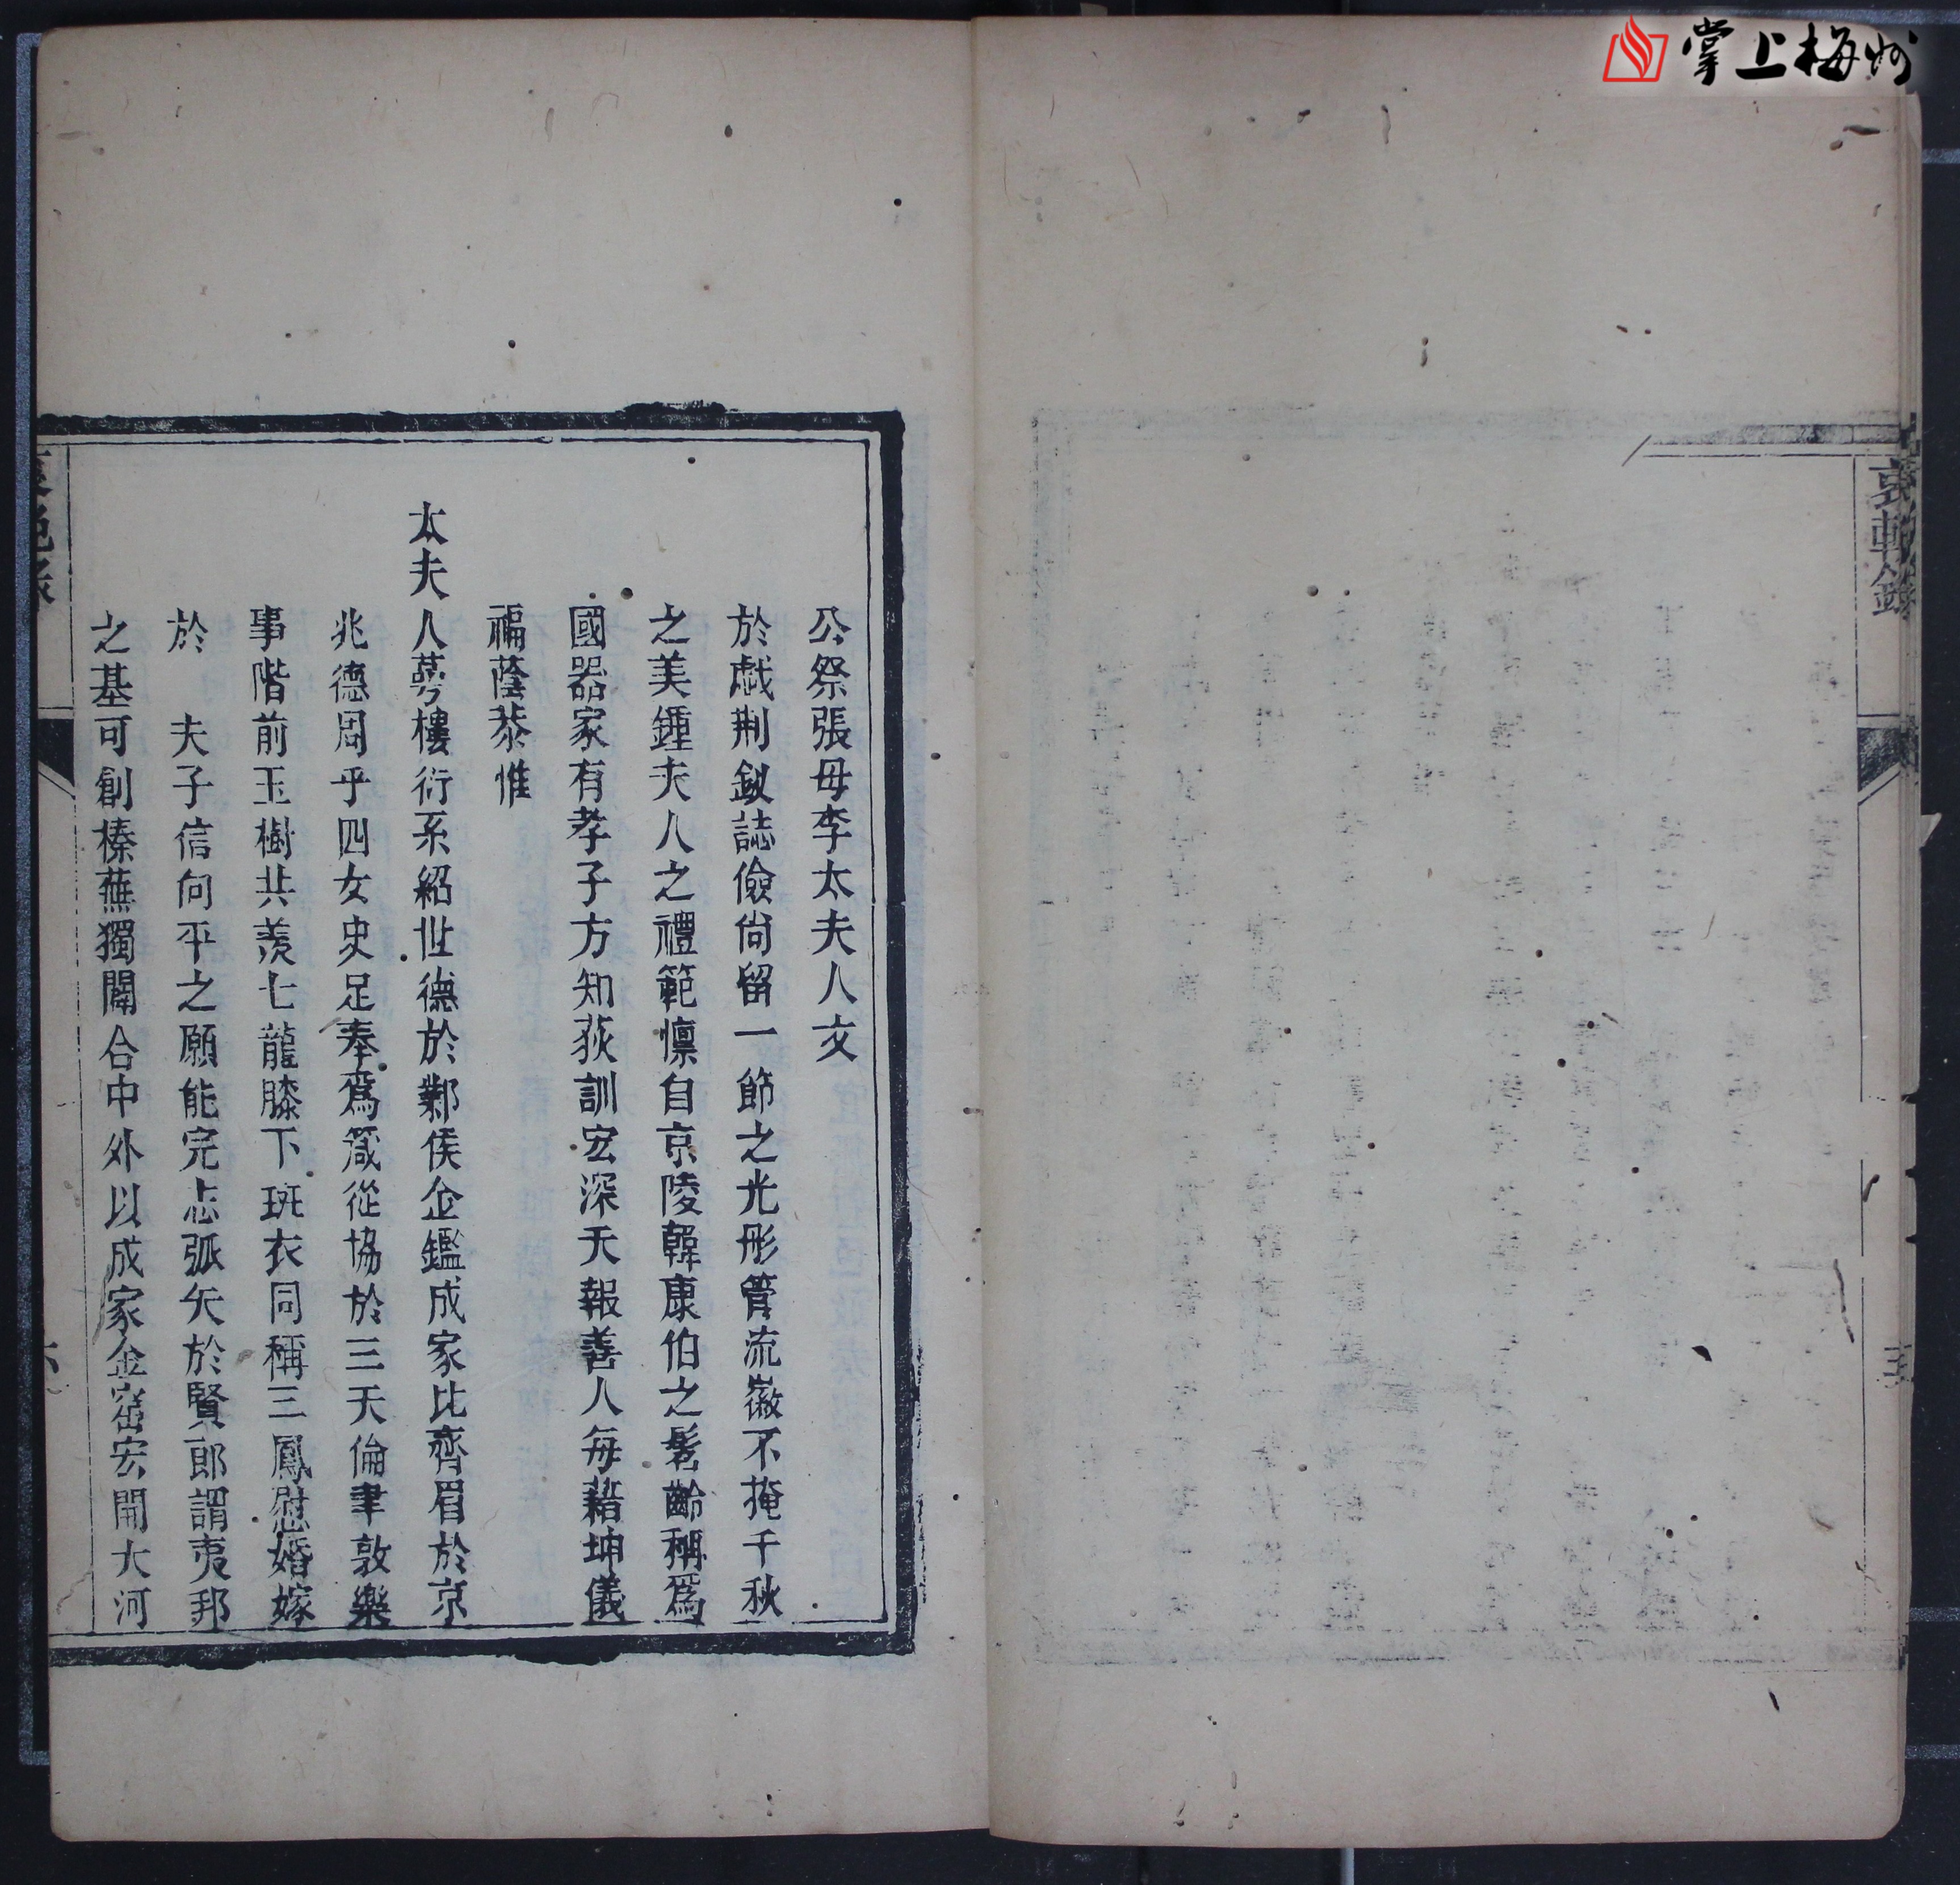 掌上梅州
哀輓錄
五
公祭張母李太夫人文
於戯荆釵誌儉尙留一節之光彤管流徽不掩千秋
之美鍾夫人之禮範懍自京陵韓康伯之髫齡稱爲
國器家有孝子方知荻訓宏深天報善人每藉坤儀
福蔭恭惟
太夫人萼樓衍系紹世德於鄴侯企鑑成家比齊眉於京
兆德周乎四女史足奉爲箴從協於三天倫聿敦樂
事階前玉樹共羨七龍膝下斑衣同稱三鳳慰婚嫁
於　夫子信向平之願能完志弧矢於賢郎謂夷邦
之基可創榛蕪獨闢合中外以成家金窑宏開大河
六